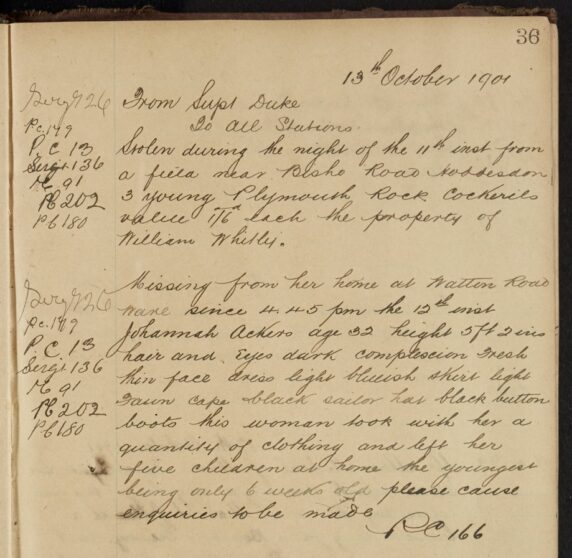 36
13th October 1901
From Supt Duke
To All Stations.
Stolen during the night of the 11th inst from
a field near Road Hoddesdon
3 young Plymouth Rock Cockerils
value 1/6 each the property of
William Whitly.
Sergt 26
Pc. 179
P. C 13
Sergt 136
91
Pc 202
Pc 180
Missing from her home at Watton Road
Ware since 4.45 pm the 12th inst
Johannah Ackers age 32 height 5ft 2 ins
hair and Eyes dark complexion Fresh
thin face dress light bluish skirt light
Fawn cape black sailor hat black button
boots this woman took with her a
quantity of clothing and left her
five children at home the youngest
being only 6 weeks old please cause
enquiries to be made
PC 166
Sergt 26
Pc. 179
P. C 13
Sergt 136
91
Pc 202
Pc 180